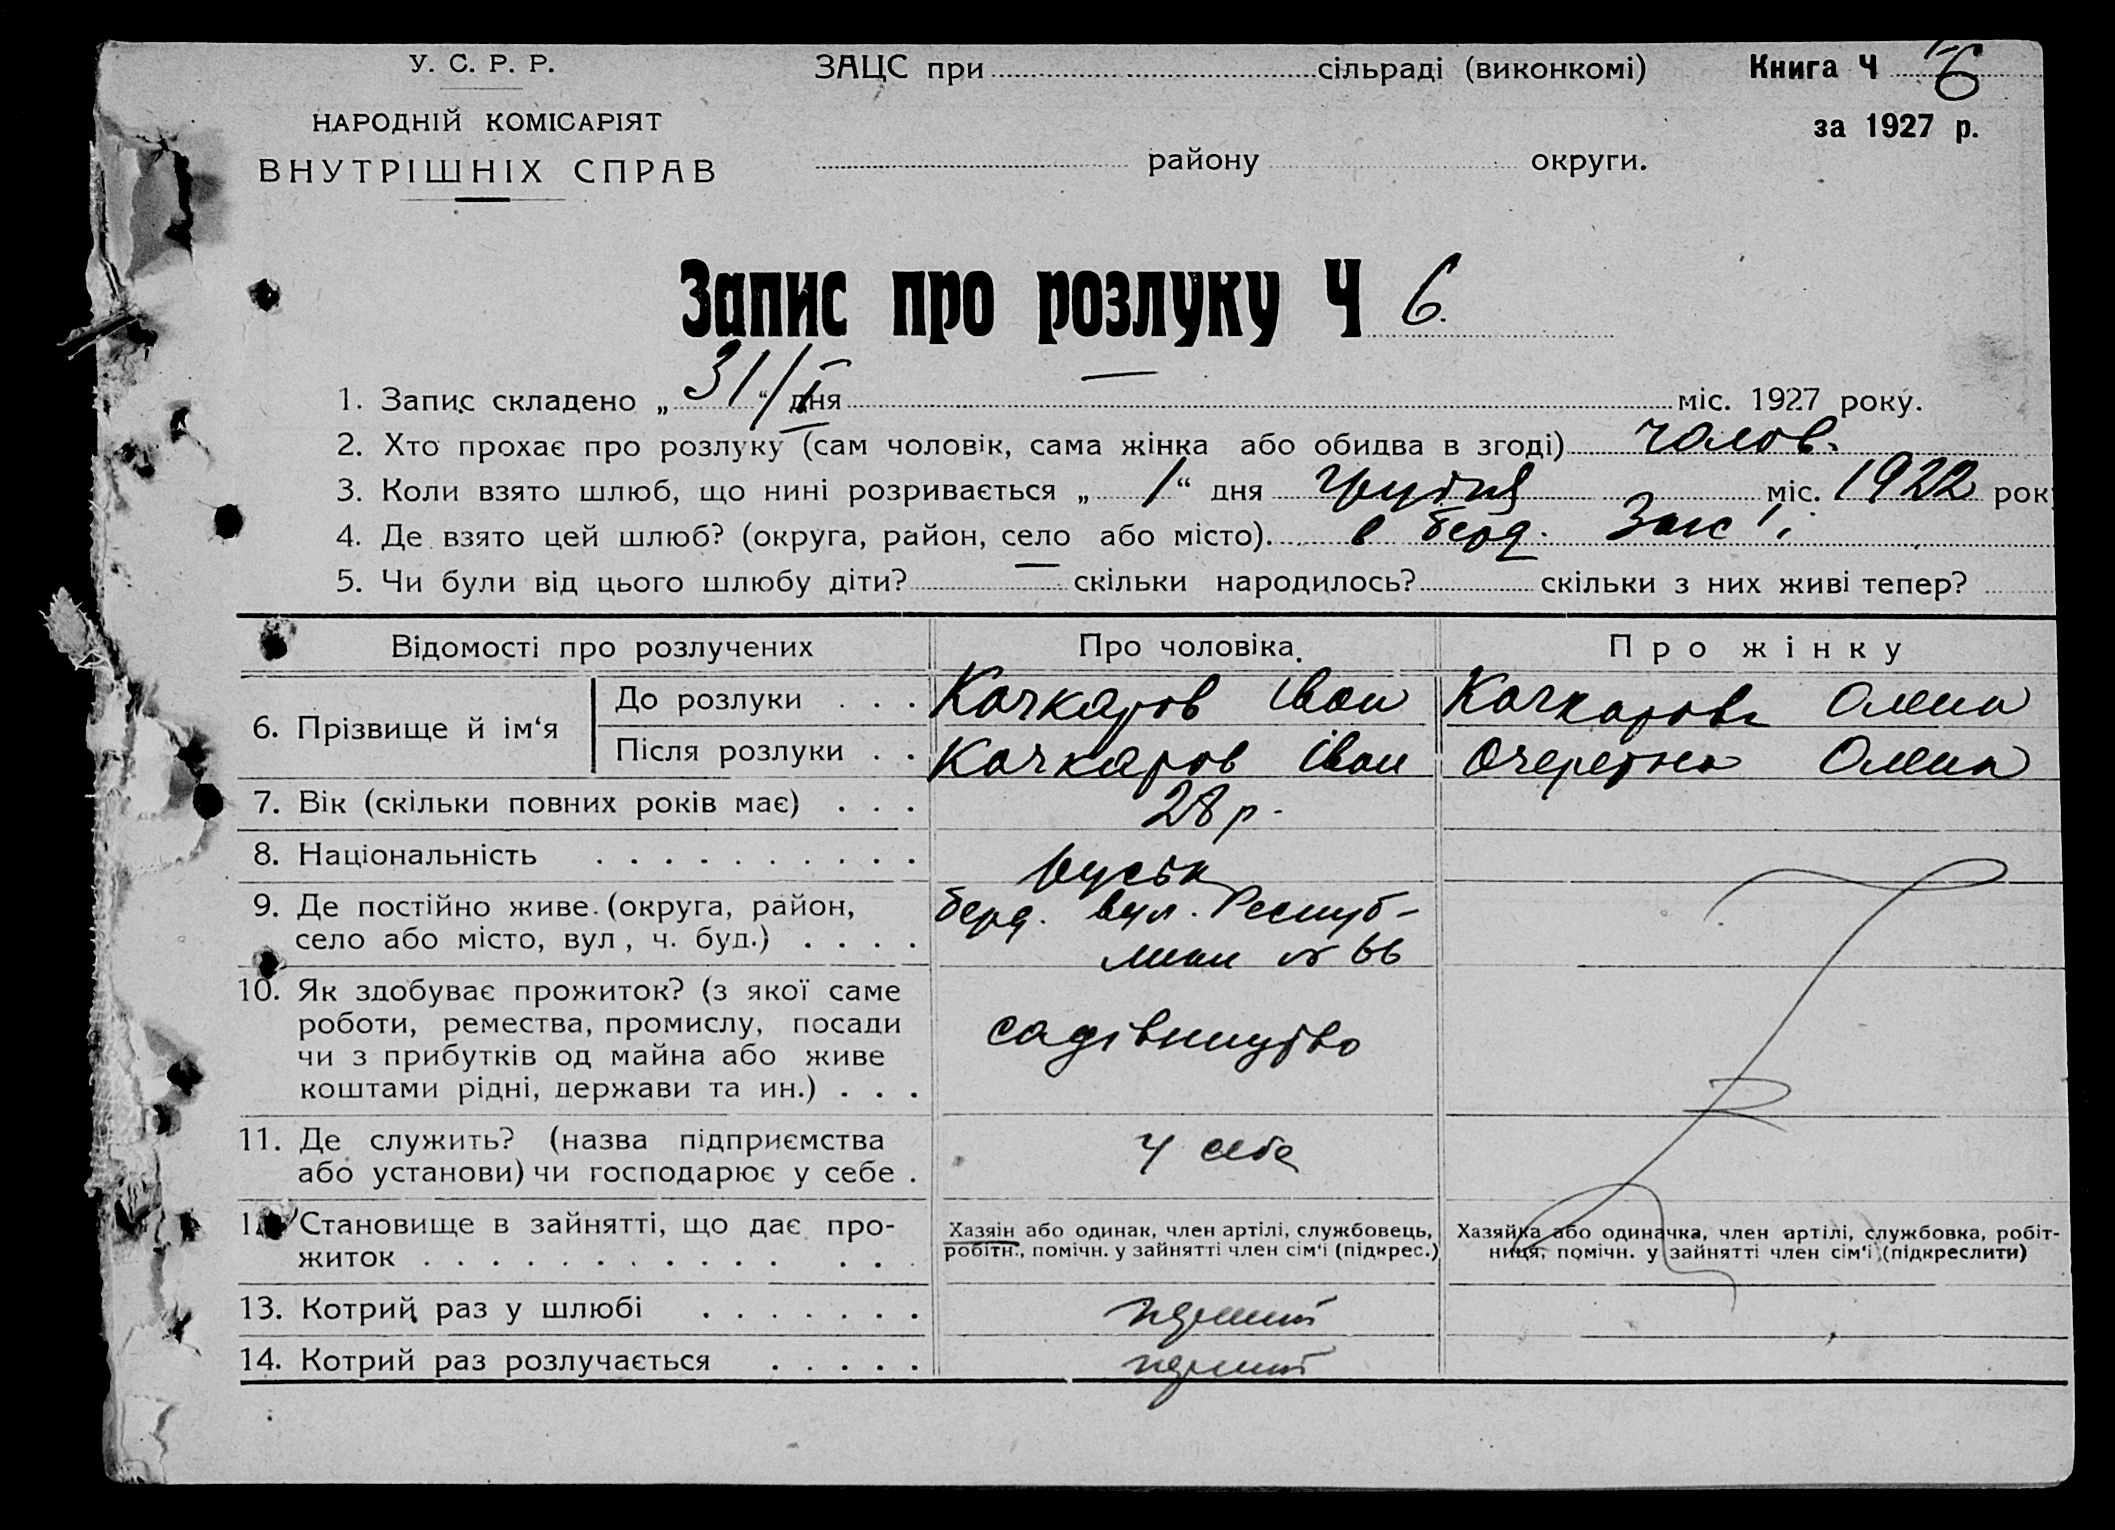 У. С. Р. Р.
НАРОДНІЙ КОМІСАРІЯТ
ВНУТРІШНІХ СПРАВ
ЗАЦС при сільраді (виконкомі)
району округи.
Книга Ч 6
за 1927 р.
Запис про розлуку Ч 6.
1. Запис складено „31/I“ дня — міс. 1927 року.
2. Хто прохає про розлуку (сам чоловік, сама жінка або обидва в згоді) чолов.
3. Коли взято шлюб, що нині розривається „1“ дня грудня міс. 1922 рок
4. Де взято цей шлюб? (округа, район, село або місто). в берд. Загс'і
5. Чи були від цього шлюбу діти? — скільки народилось? скільки з них живі тепер?
Відомості про розлучених Про чоловіка. Про жінку
6. Прізвище й ім‘я
До розлуки . . . Качкаров Іван Качкарова Олена
Після розлуки . . Качкаров Іван Очеретна Олена
7. Вік (скільки повних років має) . . . 28 р.
8. Національність . . . . . . . . . . руськ
9. Де постійно живе (округа, район, берд. вул. Респуб-
село або місто, вул, ч. буд.) . . . . лики № 66
10. Як здобуває прожиток? (з якої саме
роботи, ремества, промислу, посади садівництво
чи з прибутків од майна або живе
коштами рідні, держави та ин.) . . .
11. Де служить? (назва підприємства у себе
або установи) чи господарює у себе .
Становище в зайнятті, що дає про- Хазяін або одинак, член артілі, службовець, Хазяйка або одиначка, член артілі, службовка, робіт-
житок . . . . . . . . . . . . . . робітн., помічн. у зайнятті член сім‘ї (підкрес.) ниця, помічн. у зайнятті член сім‘ї (підкреслити)
13. Котрий раз у шлюбі . . . . . . . перший
14. Котрий раз розлучається . . . . . перший